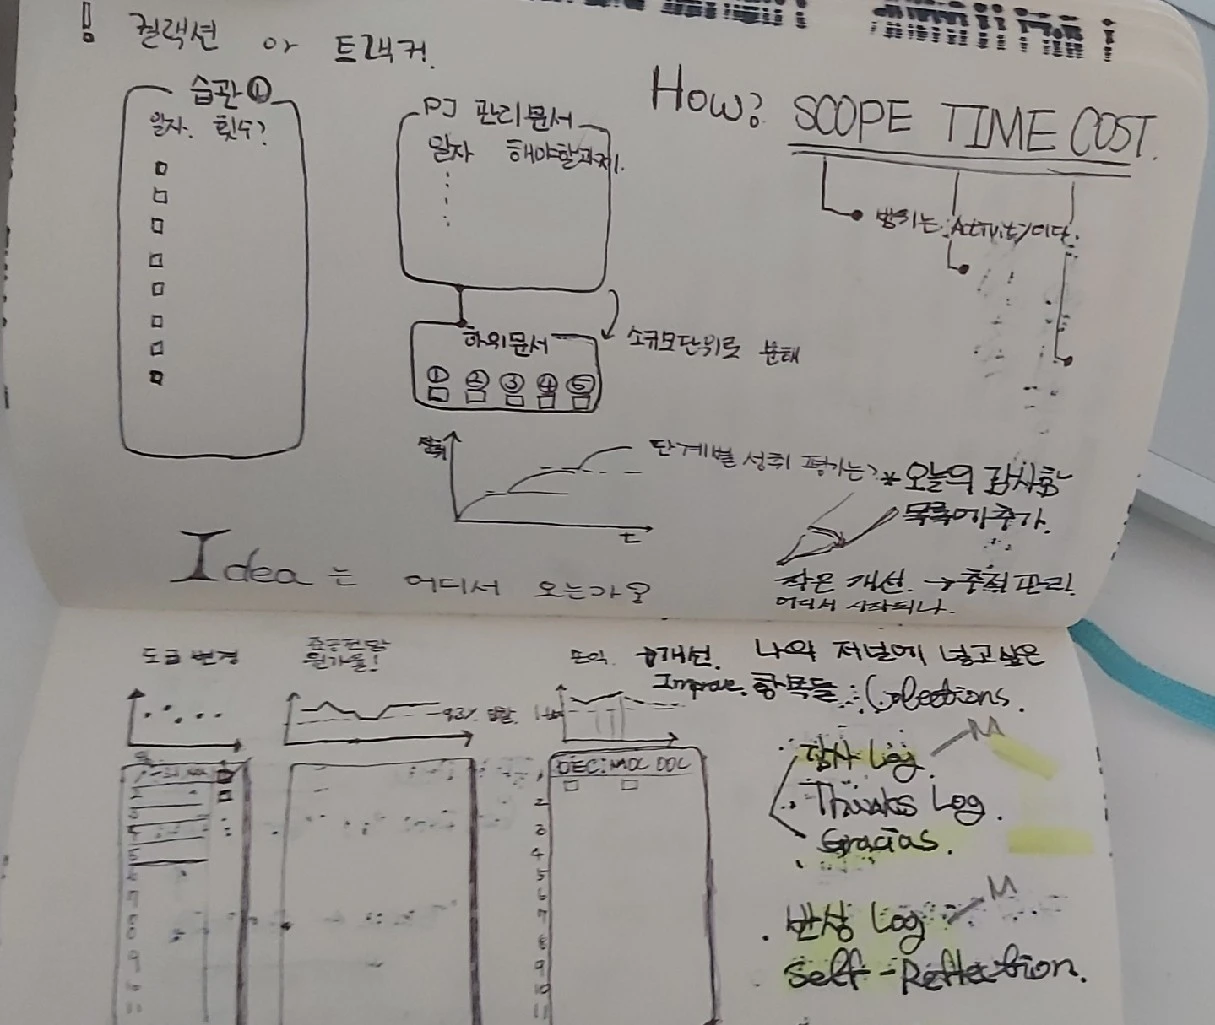 ! 컬랙션 or 트래커.
습관 ①
일자. 횟수?
PJ 관리문서
일자 해야할과제.
How? SCOPE TIME COST.
범위는 Activity이다.
하위문서
① ② ③ ④ ⑤
소규모단위로 분해
성취
t
단계별 성취 평가는?
* 오늘의 감사함
목록에 추가.
작은 개선. → 추적 관리.
어디서 시작되나.
Idea 는 어디서 오는가?
도급 변경
원가율!
개선.
Improve.
나의 저널에 넣고 싶은
항목들 : Collections.
DEC. MDC DDC
1
2
3
4
5
6
7
8
9
10
11
감사 Log. M
Thanks Log.
Gracias.
반성 Log M
Self-Reflection.